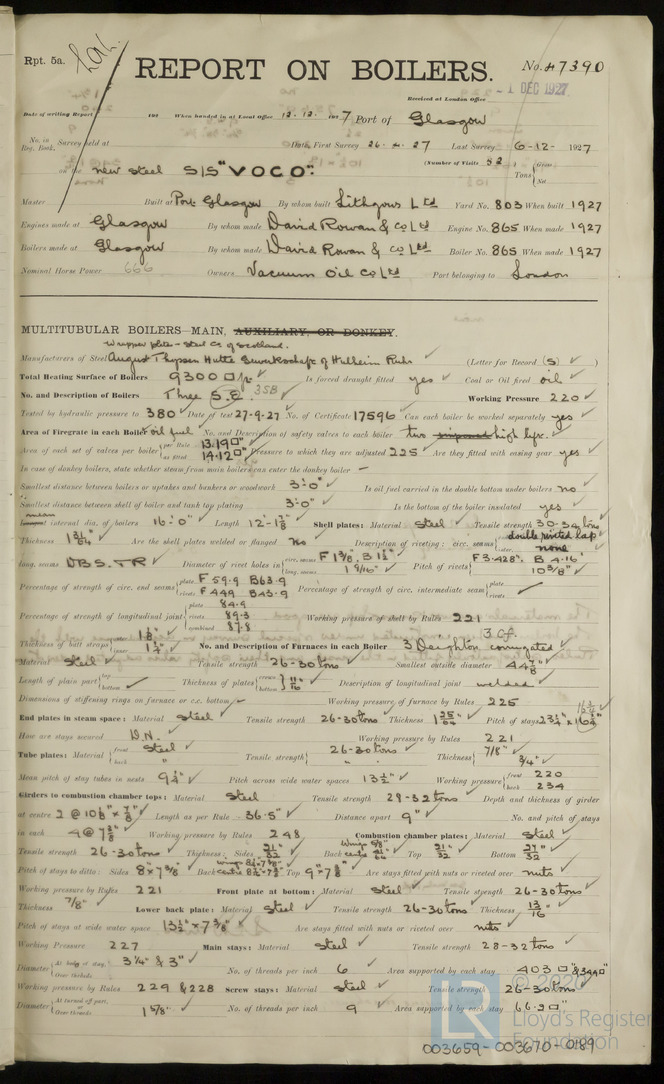 Rpt. 5a.
REPORT ON BOILERS.
No. 47390
Received at London Office
- 1 DEC 1927
Date of writing Report 192 When handed in at Local Office 12.12. 1927 Port of Glasgow
No. in Reg. Book. Survey held at Date, First Survey 26.4.27 Last Survey 6-12- 1927
on the new steel S/S "VOCO". (Number of Visits 52) Tons { Gross Net
Master Built at Port Glasgow By whom built Lithgows Ltd Yard No. 803 When built 1927
Engines made at Glasgow By whom made David Rowan & Co Ltd Engine No. 865 When made 1927
Boilers made at Glasgow By whom made David Rowan & Co Ltd Boiler No. 865 When made 1927
Nominal Horse Power 666 Owners Vacuum Oil Co Ltd Port belonging to London
MULTITUBULAR BOILERS—MAIN, AUXILIARY, OR DONKEY.
Wrapper plates - Steel Co of Scotland.
Manufacturers of Steel August Thyssen Hutte Gewerkschaft Ruhr (Letter for Record (S) )
Total Heating Surface of Boilers 9300 Is forced draught fitted yes Coal or Oil fired oil
No. and Description of Boilers Three S.E. 35B Working Pressure 220
Tested by hydraulic pressure to 380 Date of test 27-9-27 No. of Certificate 17596 Can each boiler be worked separately yes
Area of Firegrate in each Boiler oil fuel No. and Description of safety valves to each boiler two high lift.
Area of each set of valves per boiler { per Rule 13.19□" as fitted 14.12□" Pressure to which they are adjusted 225 Are they fitted with easing gear yes
In case of donkey boilers, state whether steam from main boilers can enter the donkey boiler –
Smallest distance between boilers or uptakes and bunkers or woodwork 3'-0" Is oil fuel carried in the double bottom under boilers no
Smallest distance between shell of boiler and tank top plating 3'-0" Is the bottom of the boiler insulated yes
internal dia. of boilers 16'-0" Length 12'-1⅞" Shell plates: Material Steel Tensile strength 30-34 tons
Thickness 1 31/64" Are the shell plates welded or flanged no Description of riveting: circ. seams { double riveted lap inter. none
long. seams D.B.S. T.R Diameter of rivet holes in { circ. seams F 1⅜", B 1½" long. seams 1 9/16" Pitch of rivets { F 3.428", B 4.16" 10⅜"
Percentage of strength of circ. end seams { plate F 59.9 B 63.9 rivets F 44.9 B 43.9 Percentage of strength of circ. intermediate seam {
Percentage of strength of longitudinal joint { plate 84.9 rivets 89.3 combined 87.8 Working pressure of shell by Rules 221
Thickness of butt straps { outer 1⅛" inner 1¼" No. and Description of Furnaces in each Boiler 3 Deighton corrugated 3 Cf.
Material Steel Tensile strength 26-30 tons Smallest outside diameter 44⅞"
Length of plain part { top bottom – Thickness of plates { crown bottom } 11/16" Description of longitudinal joint welded
Dimensions of stiffening rings on furnace or c.c. bottom – Working pressure of furnace by Rules 225
End plates in steam space: Material Steel Tensile strength 26-30 tons Thickness 1 25/64" Pitch of stays 23¼" x 16¾"
How are stays secured D.N. Working pressure by Rules 221
Tube plates: Material { front Steel back " Tensile strength { 26-30 tons " Thickness { 7/8" 3/4"
Mean pitch of stay tubes in nests 9¼" Pitch across wide water spaces 13½" Working pressure { front 220 back 234
Girders to combustion chamber tops: Material Steel Tensile strength 29-32 tons Depth and thickness of girder
at centre 2 @ 10⅛" x ⅞" Length as per Rule 36.5" Distance apart 9" No. and pitch of stays
in each 4 @ 7⅜" Working pressure by Rules 248 Combustion chamber plates: Material Steel
Tensile strength 26-30 tons Thickness: Sides 21/32" Back wings 5/8" centre 41/64" Top 21/32" Bottom 27/32"
Pitch of stays to ditto: Sides 8" x 7⅜" Back wings 8½" x 7⅜" centre 8½" x 7½" Top 9" x 7⅜" Are stays fitted with nuts or riveted over nuts
Working pressure by Rules 221 Front plate at bottom: Material Steel Tensile strength 26-30 tons
Thickness 7/8" Lower back plate: Material Steel Tensile strength 26-30 tons Thickness 13/16
Pitch of stays at wide water space 13½" x 7⅜" Are stays fitted with nuts or riveted over nuts
Working Pressure 227 Main stays: Material Steel Tensile strength 28-32 tons
Diameter { At body of stay, or Over threads 3¼" & 3" No. of threads per inch 6 Area supported by each stay 403□" & 344□"
Working pressure by Rules 229 & 228 Screw stays: Material Steel Tensile strength 26-30 tons
Diameter { At turned off part, or Over threads 1⅝" No. of threads per inch 9 Area supported by each stay 66.2□"
© 2020
LR
Lloyd's Register
Foundation
003659-003670-0189